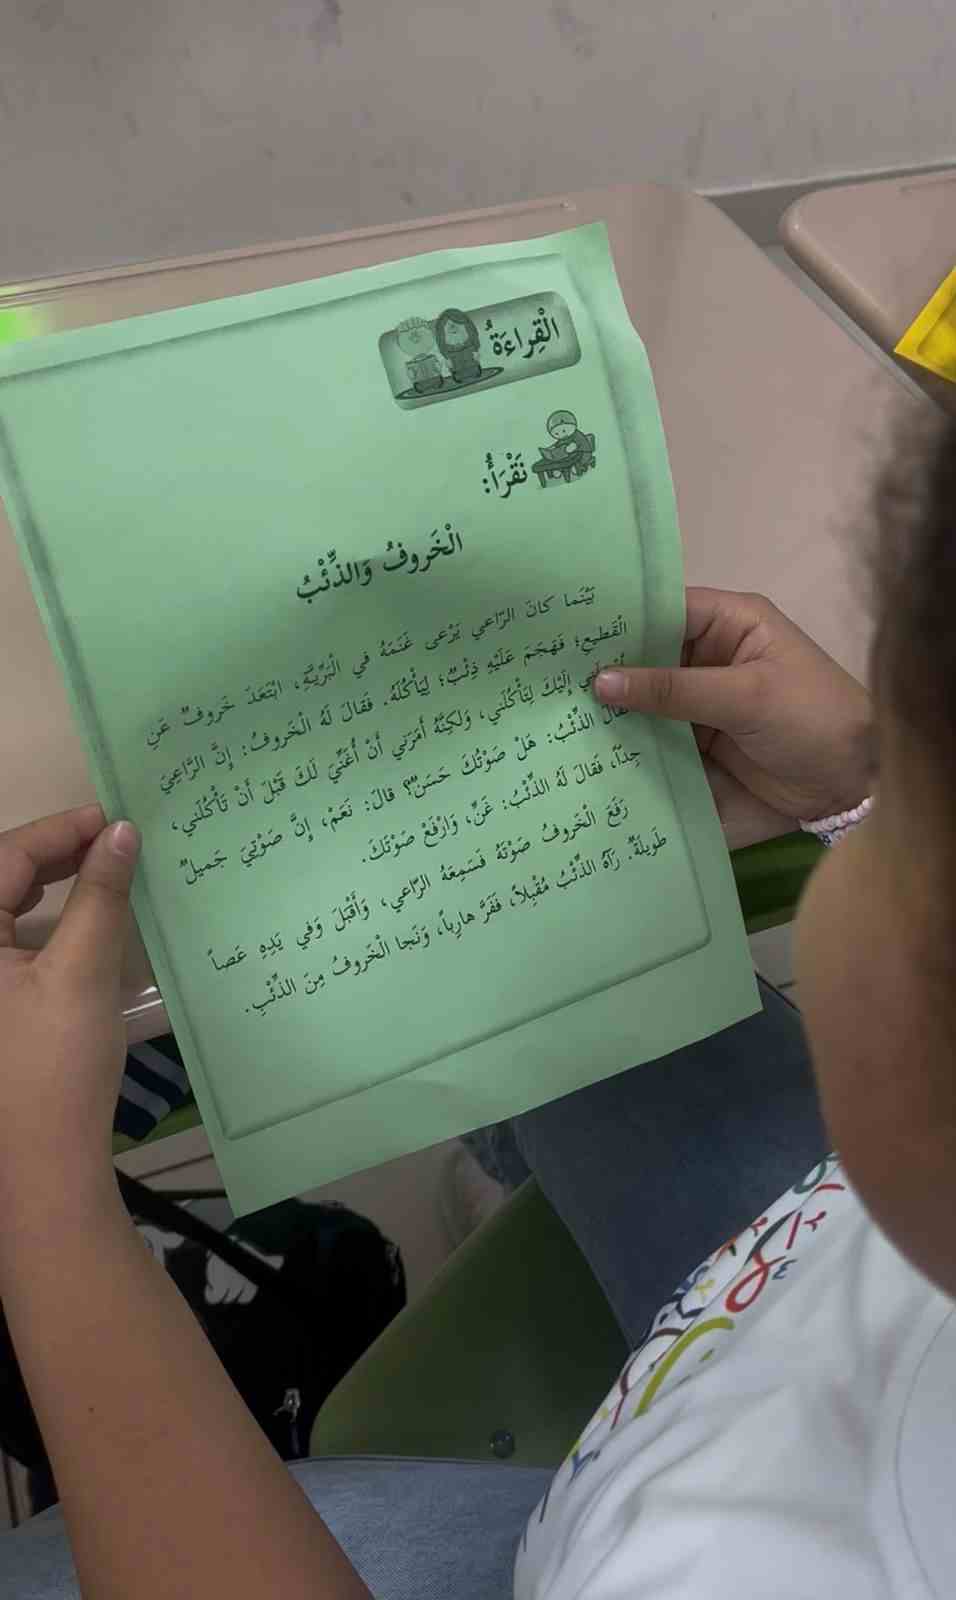 الْقِراءَةُ
نَقْرَأُ:
الْخَروفُ وَالذِّئْبُ
بَيْنَما كانَ الرّاعي يَرْعى غَنَمَهُ في الْبَرِّيَّةِ، ابْتَعَدَ خَروفٌ عَنِ
الْقَطيعِ؛ فَهَجَمَ عَلَيْهِ ذِئْبٌ؛ لِيَأْكُلَهُ. فَقالَ لَهُ الْخَروفُ: إِنَّ الرّاعِيَ
إِلَيْكَ لِتَأْكُلَني، وَلكِنَّهُ أَمَرَني أَنْ أُغَنِّيَ لَكَ قَبْلَ أَنْ تَأْكُلَني،
فَقالَ الذِّئْبُ: هَلْ صَوْتُكَ حَسَنٌ؟ قالَ: نَعَمْ، إِنَّ صَوْتِيَ جَميلٌ
جِدّاً، فَقالَ لَهُ الذِّئْبُ: غَنِّ، وَارْفَعْ صَوْتَكَ.
رَفَعَ الْخَروفُ صَوْتَهُ فَسَمِعَهُ الرّاعي، وَأَقْبَلَ وَفي يَدِهِ عَصاً
طَويلَةٌ. رَآهُ الذِّئْبُ مُقْبِلاً، فَفَرَّ هارِباً، وَنَجا الْخَروفُ مِنَ الذِّئْبِ.